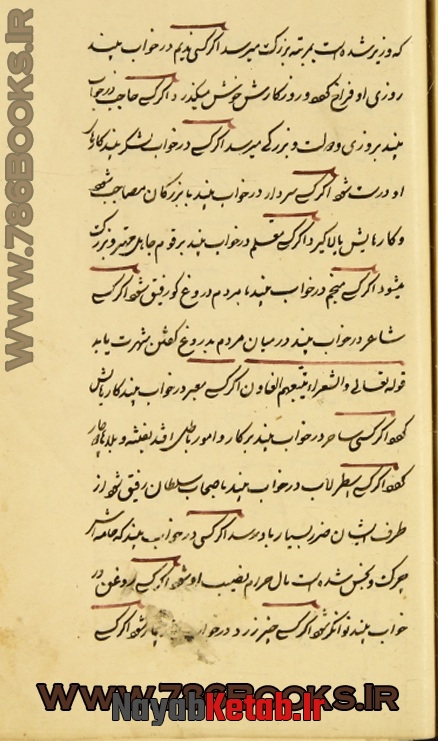 که وزیر شده است بمرتبه بزرگ میرسد اگر کسی ندیم در خواب بیند
روزی او فراخ شود و روزگارش خوش میگذرد اگر کسی حاجب در خواب
بیند بروزی و دولت و بزرگی میرسد اگر کسی در خواب لشکر بیند کارهای
او درست شود اگر کسی سردار در خواب بیند با بزرگان مصاحب شود
و کارهایش بالا گیرد اگر کسی معلم در خواب بیند بر قوم جاهل مهتر و بزرگ
میشود اگر کسی منجم در خواب بیند با مردم دروغ گو رفیق شود اگر کسی
شاعر در خواب بیند در میان مردم بدروغ گفتن شهرت یابد
قوله تعالی والشعراء یتبعهم الغاون اگر کسی معبر در خواب بیند کارهایش
شود اگر کسی ساحر در خواب بیند بر کار و امور باطل افتد بفتنه و بلا
شود اگر کسی اسطرلاب در خواب بیند با صحاب سلطان رفیق شود از
طرف ایشان ضرر بسیار باو رسد اگر کسی در خواب بیند که جامه اش
چرک و نجس شده است مال حرام نصیب او شود اگر کسی روغن در
خواب بیند توانگر شود اگر کسی چیز زرد در خواب شود اگر کسی
WWW.786BOOKS.IR
WWW.786BOOKS.IR
NayabKetab.ir